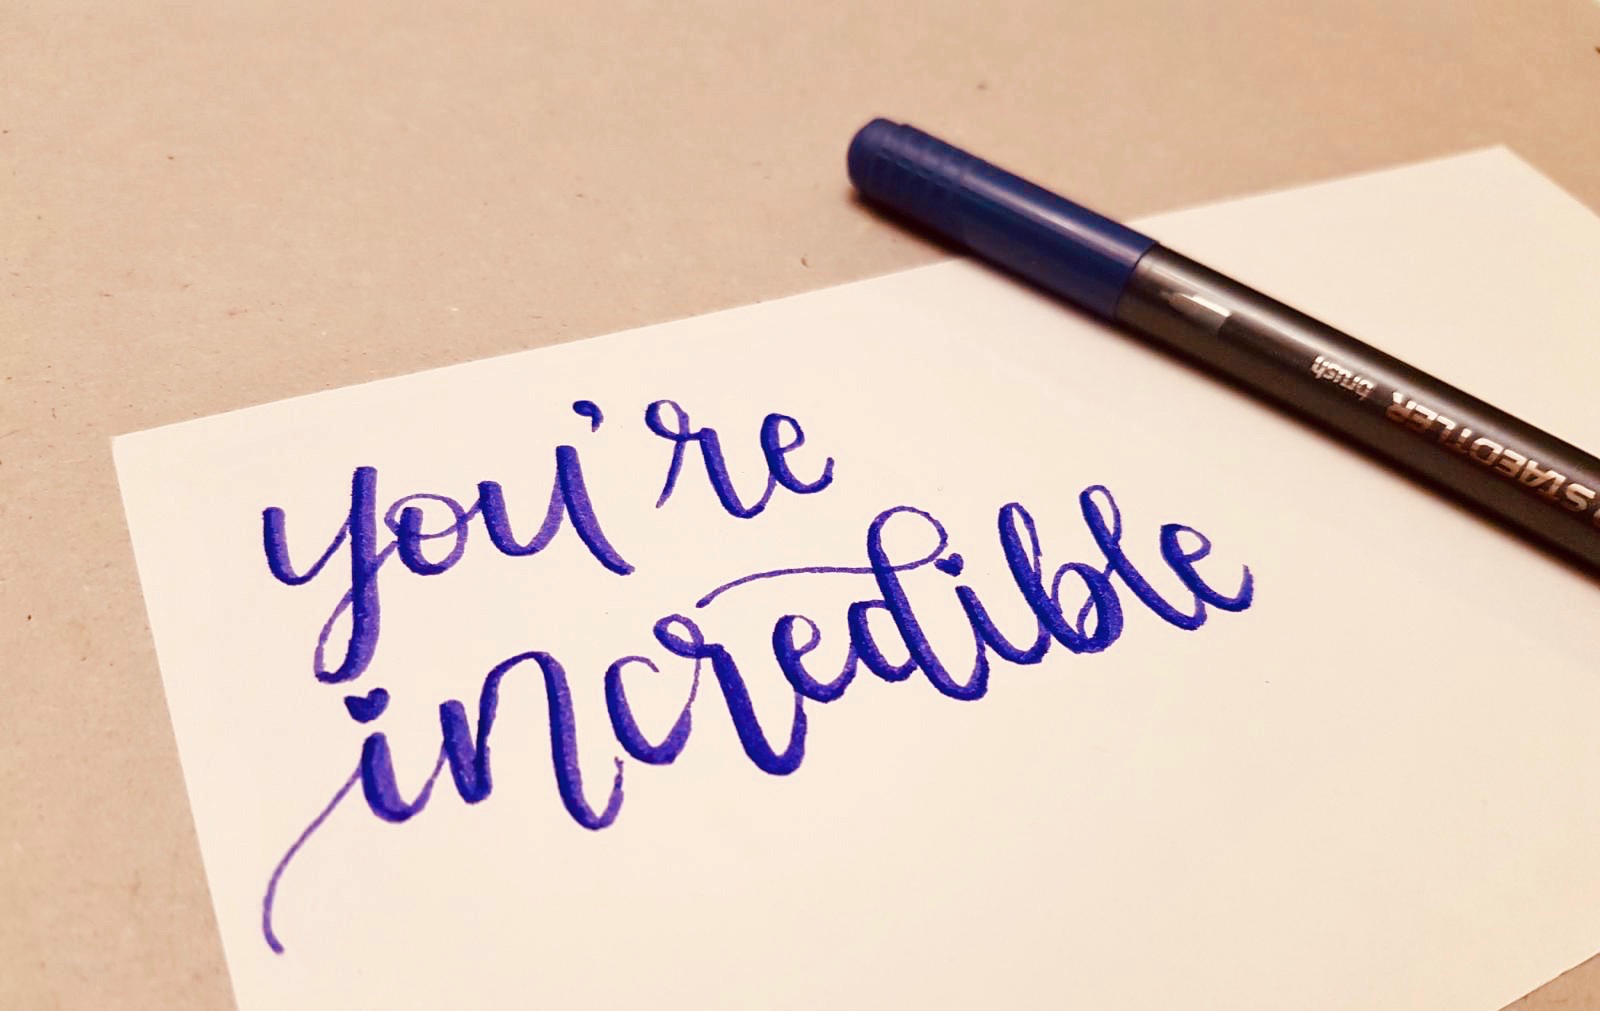 you're
incredible
STAEDTLER brush